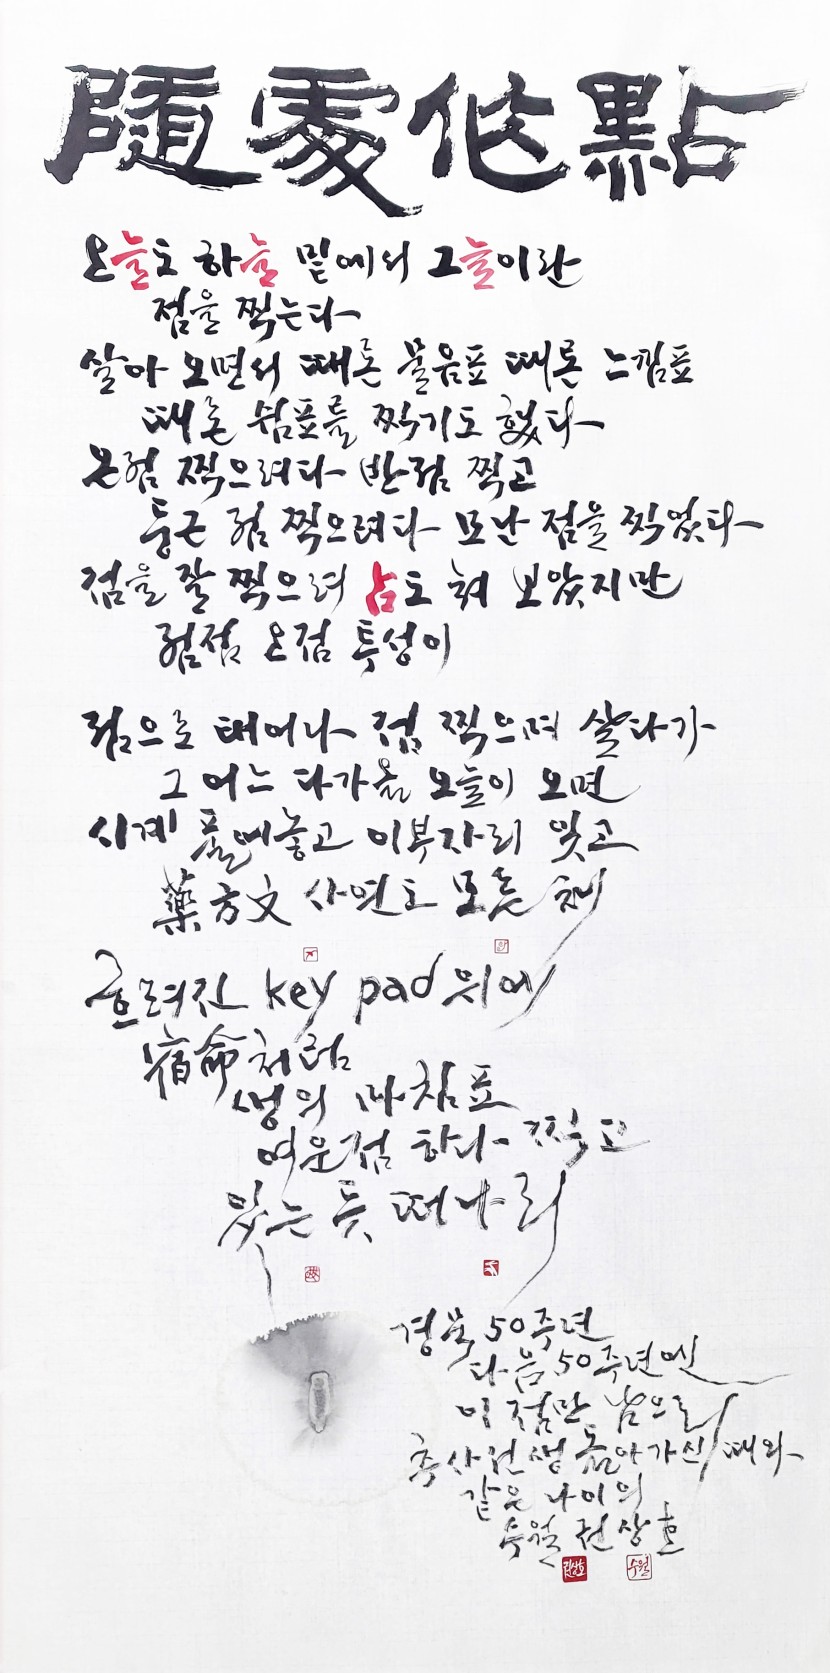 隨處作點
오늘도 하늘 밑에서 그늘이란
점을 찍는다
살아 오면서 때론 물음표 때론 느낌표
때론 쉼표를 찍기도 했다
온점 찍으려다 반점 찍고
둥근 점 찍으려다 모난 점을 찍었다
점을 잘 찍으려 占도 쳐 보았지만
점점 오점 투성이
점으로 태어나 점 찍으며 살다가
그 어느 다가올 오늘이 오면
시계 풀어놓고 이부자리 잊고
藥方文 사연도 모른 채
흐려진 key pad 위에
宿命처럼
생의 마침표
여운점 하나 찍고
있는 듯 떠나리
경북 50주년
다음 50주년엔
이 점만 남으리
추사선생 돌아가신 때와
같은 나이의
수월 권상호
권상호 수월